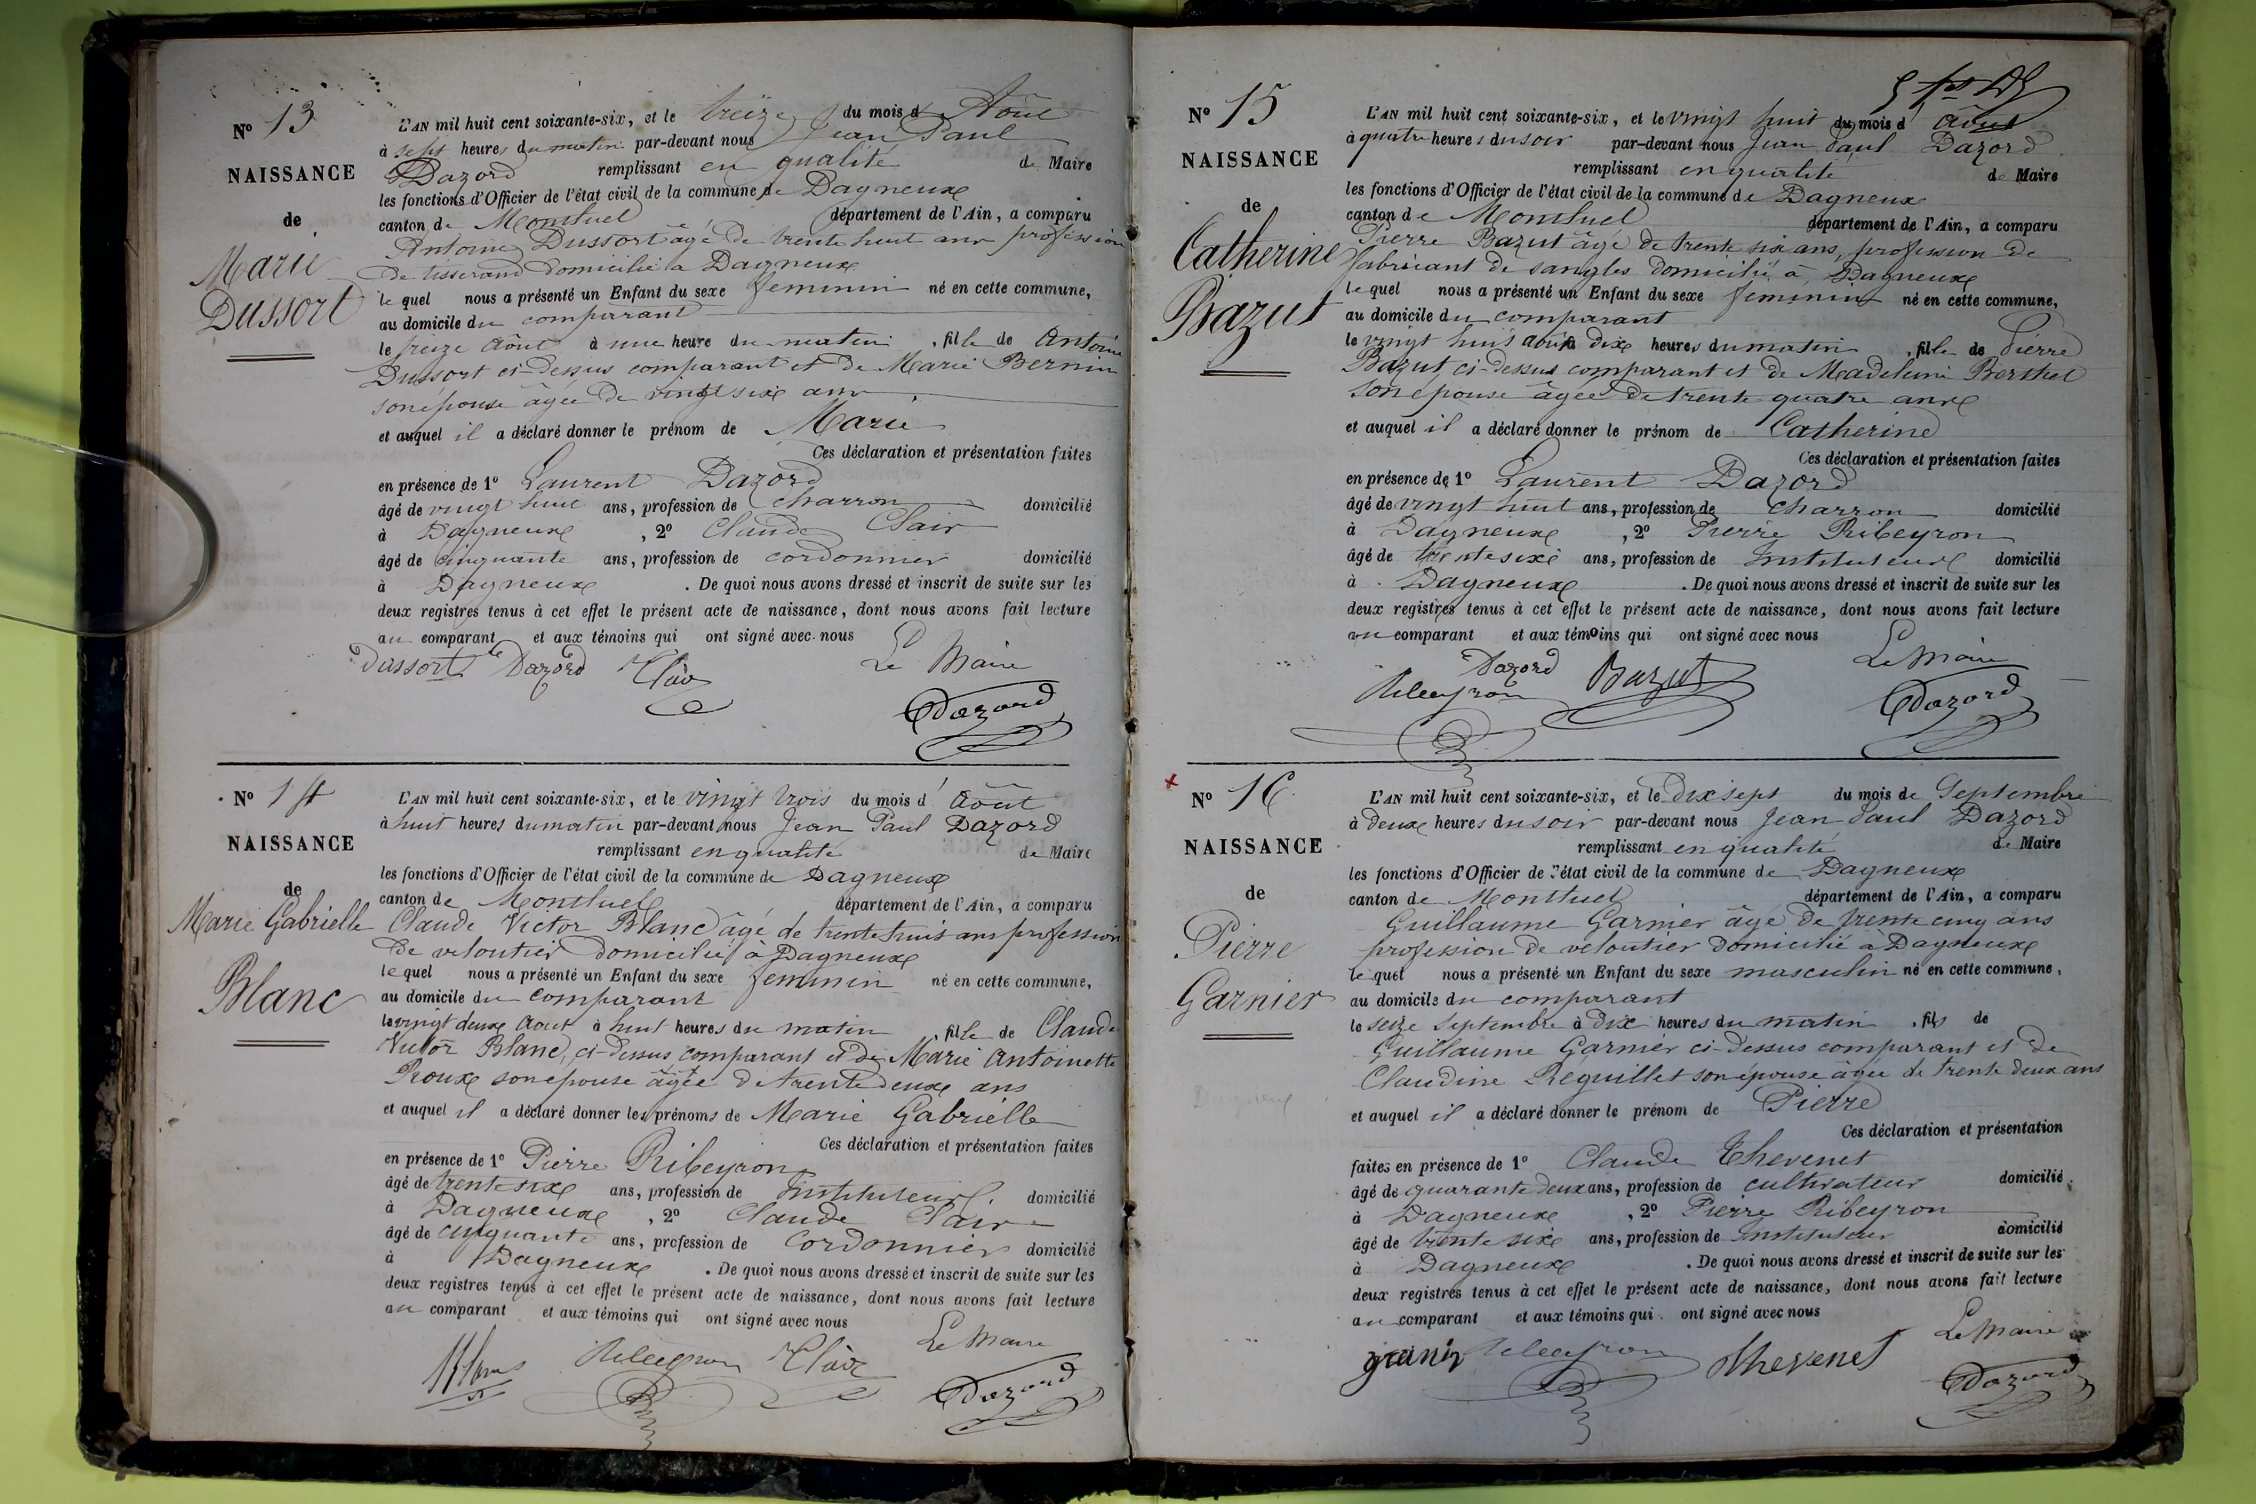 N° 13
NAISSANCE
de
Marie
Dussort
L'AN mil huit cent soixante-six, et le treize du mois d Août
à sept heures du matin par-devant nous Jean Paul
Dazord remplissant en qualité de Maire
les fonctions d'Officier de l'état civil de la commune de Dagneux
canton de Montluel département de l'Ain, a comparu
Antoine Dussort âgé de trente huit ans profession
de tisserand domicilié à Dagneux
le quel nous a présenté un Enfant du sexe feminin né en cette commune,
au domicile du comparant
le treize Août à une heure du matin , fille de Antoine
Dussort ci-dessus comparant et de Marie Bernin
son épouse âgée de vingt six ans
et auquel il a déclaré donner le prénom de Marie
Ces déclaration et présentation faites
en présence de 1° Laurent Dazord
âgé de vingt huit ans, profession de charron domicilié
à Dagneux , 2° Claude Clair
âgé de cinquante ans, profession de cordonnier domicilié
à Dagneux . De quoi nous avons dressé et inscrit de suite sur les
deux registres tenus à cet effet le présent acte de naissance, dont nous avons fait lecture
au comparant et aux témoins qui ont signé avec nous
Le Maire
Dussort Dazord Clair
Dazord
N° 14
NAISSANCE
de
Marie Gabrielle
Blanc
L'AN mil huit cent soixante-six, et le vingt trois du mois d' Août
à huit heures du matin par-devant nous Jean Paul Dazord
remplissant en qualité de Maire
les fonctions d'Officier de l'état civil de la commune de Dagneux
canton de Montluel département de l'Ain, a comparu
Claude Victor Blanc âgé de trente huit ans profession
de veloutier domicilié à Dagneux
le quel nous a présenté un Enfant du sexe feminin né en cette commune,
au domicile du comparant
le vingt deux Aout à huit heures du matin , fille de Claude
Victor Blanc, ci-dessus comparant et de Marie Antoinette
Roux son épouse âgée de trente deux ans
et auquel il a déclaré donner les prénoms de Marie Gabrielle
Ces déclaration et présentation faites
en présence de 1° Pierre Ribeyron
âgé de trente six ans, profession de Instituteur domicilié
à Dagneux , 2° Claude Clair
âgé de cinquante ans, profession de cordonnier domicilié
à Dagneux . De quoi nous avons dressé et inscrit de suite sur les
deux registres tenus à cet effet le présent acte de naissance, dont nous avons fait lecture
au comparant et aux témoins qui ont signé avec nous
Le Maire
Ribeyron Clair
Dazord
N° 15
NAISSANCE
de
Catherine
Bazut
L'AN mil huit cent soixante-six, et le vingt huit du mois d' Août
à quatre heures du soir par-devant nous Jean Paul Dazord
remplissant en qualité de Maire
les fonctions d'Officier de l'état civil de la commune de Dagneux
canton de Montluel département de l'Ain, a comparu
Pierre Bazut âgé de trente six ans, profession de
fabricant de sangles domicilié à Dagneux
le quel nous a présenté un Enfant du sexe feminin né en cette commune,
au domicile du comparant
le vingt huit août à dix heures du matin , fille de Pierre
Bazut ci-dessus comparant et de Madeleine Berthet
son épouse âgée de trente quatre ans
et auquel il a déclaré donner le prénom de Catherine
Ces déclaration et présentation faites
en présence de 1° Laurent Dazord
âgé de vingt huit ans, profession de Charron domicilié
à Dagneux , 2° Pierre Ribeyron
âgé de trente six ans, profession de Instituteur domicilié
à Dagneux . De quoi nous avons dressé et inscrit de suite sur les
deux registres tenus à cet effet le présent acte de naissance, dont nous avons fait lecture
au comparant et aux témoins qui ont signé avec nous
Le Maire
Dazord Bazut
Ribeyron Dazord
N° 16
NAISSANCE
de
Pierre
Garnier
L'AN mil huit cent soixante-six, et le dix sept du mois de Septembre
à deux heures du soir par-devant nous Jean Paul Dazord
remplissant en qualité de Maire
les fonctions d'Officier de l'état civil de la commune de Dagneux
canton de Montluel département de l'Ain, a comparu
Guillaume Garnier âgé de trente cinq ans
profession de veloutier domicilié à Dagneux
le quel nous a présenté un Enfant du sexe masculin né en cette commune,
au domicile du comparant
le seize Septembre à dix heures du matin , fils de
Guillaume Garnier ci-dessus comparant et de
Claudine Reguillet son épouse âgée de trente deux ans
et auquel il a déclaré donner le prénom de Pierre
Ces déclaration et présentation
faites en présence de 1° Claude Thevenet
âgé de quarante deux ans, profession de cultivateur domicilié
à Dagneux , 2° Pierre Ribeyron
âgé de trente six ans, profession de Instituteur domicilié
à Dagneux . De quoi nous avons dressé et inscrit de suite sur les
deux registres tenus à cet effet le présent acte de naissance, dont nous avons fait lecture
au comparant et aux témoins qui ont signé avec nous
Le Maire
Ribeyron Thevenet
Dazord